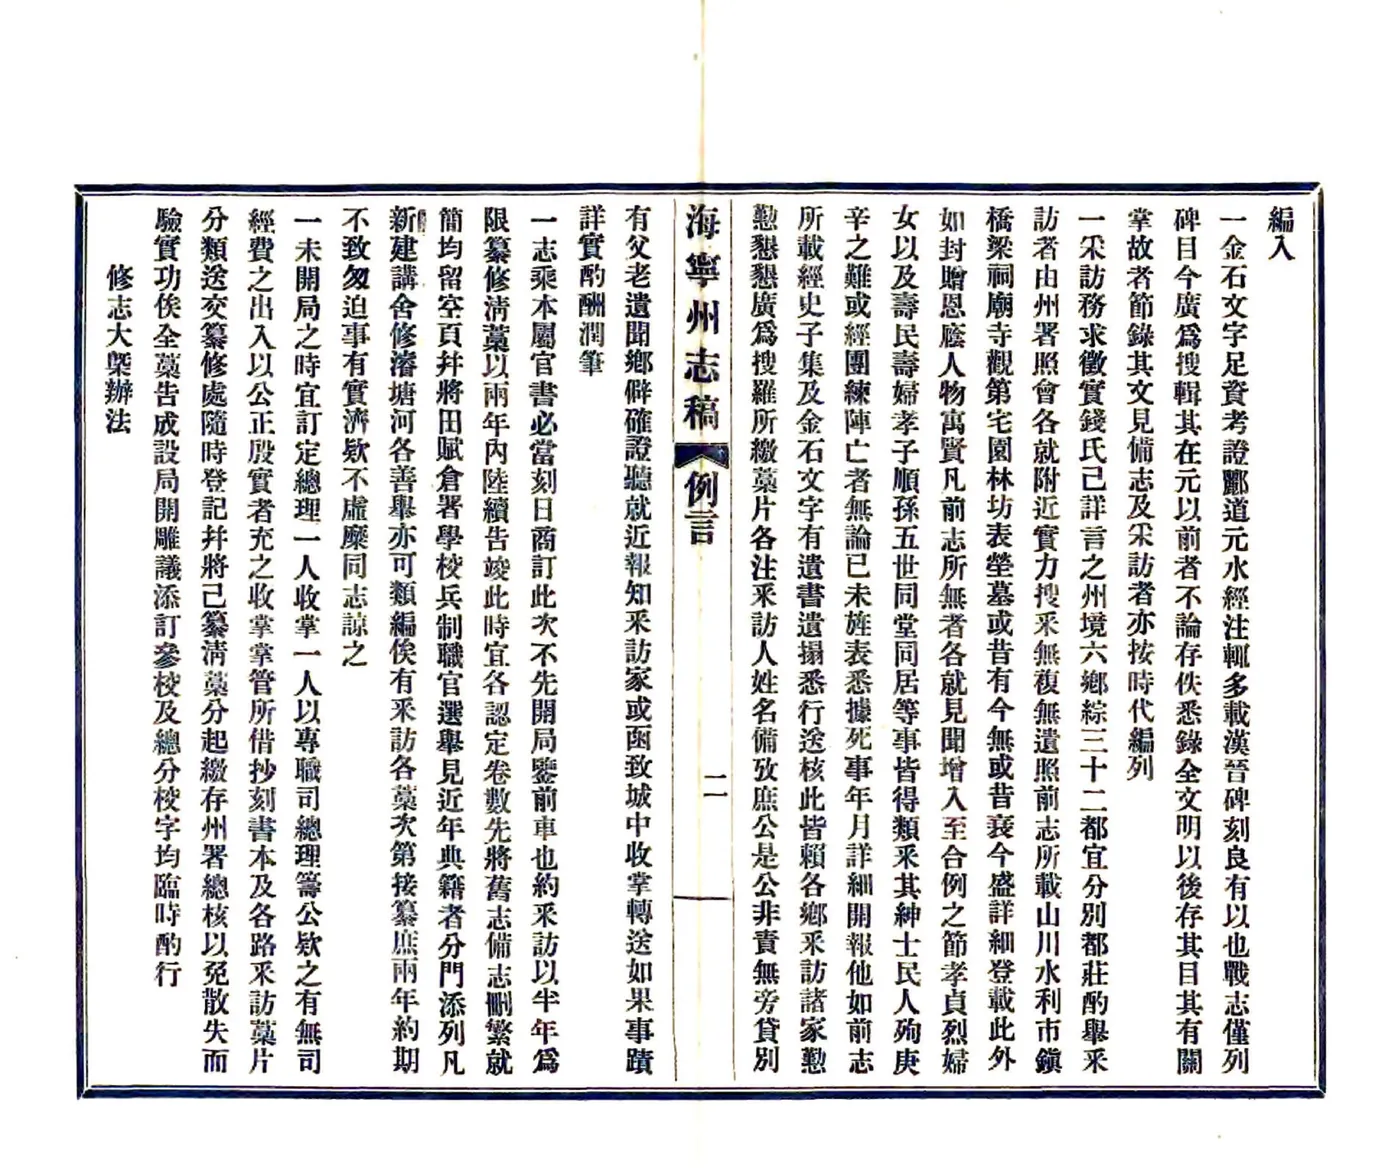 編入
一金石文字足資考證酈道元水經注輒多載漢晉碑刻良有以也戰志僅列
碑目今廣爲搜輯其在元以前者不論存佚悉錄全文明以後存其目其有關
掌故者節錄其文見備志及采訪者亦按時代編列
一采訪務求徵實錢氏已詳言之州境六鄉綜三十二都宜分別都莊酌舉采
訪者由州署照會各就附近實力搜采無複無遺照前志所載山川水利市鎭
橋梁祠廟寺觀第宅園林坊表塋墓或昔有今無或昔衰今盛詳細登載此外
如封贈恩廕人物寓賢凡前志所無者各就見聞增入至合例之節孝貞烈婦
女以及壽民壽婦孝子順孫五世同堂同居等事皆得類采其紳士民人殉庚
辛之難或經團練陣亡者無論已未旌表悉據死事年月詳細開報他如前志
所載經史子集及金石文字有遺書遺搨悉行送核此皆賴各鄉采訪諸家懃
懃懇懇廣爲搜羅所繳藁片各注采訪人姓名備攷庶公是公非責無旁貸別
海寧州志稿
例言
二
有父老遺聞鄉僻確證聽就近報知采訪家或函致城中收掌轉送如果事蹟
詳實酌酬潤筆
一志乘本屬官書必當刻日商訂此次不先開局鑒前車也約采訪以半年爲
限纂修淸藁以兩年內陸續告竣此時宜各認定卷數先將舊志備志刪繁就
簡均留空頁幷將田賦倉署學校兵制職官選舉見近年典籍者分門添列凡
新建講舍修濬塘河各善舉亦可類編俟有采訪各藁次第接纂庶兩年約期
不致匆迫事有實濟欵不虛糜同志諒之
一未開局之時宜訂定總理一人收掌一人以專職司總理籌公欵之有無司
經費之出入以公正殷實者充之收掌掌管所借抄刻書本及各路采訪藁片
分類送交纂修處隨時登記幷將已纂淸藁分起繳存州署總核以免散失而
驗實功俟全藁告成設局開雕議添訂參校及總分校字均臨時酌行
修志大槩辦法